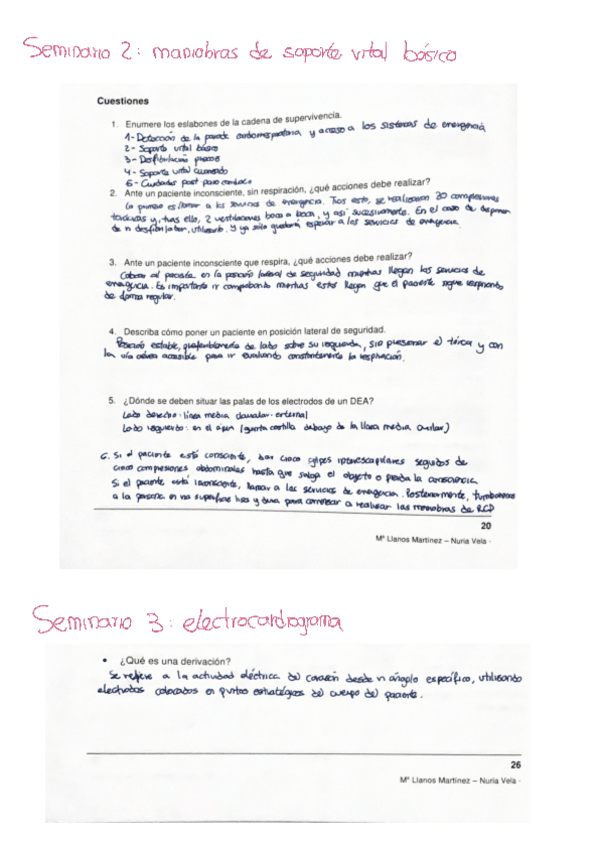 Seminario 2: maniobras de soporte vital básico
Cuestiones
1. Enumere los eslabones de la cadena de supervivencia.
1- Detección de la parada cardiorrespiratoria y acceso a los sistemas de emergencia
2- Soporte vital básico
3- Desfibrilación precoz
4- Soporte vital avanzado
5- Cuidados post paro cardiaco
2. Ante un paciente inconsciente, sin respiración, ¿qué acciones debe realizar?
Lo primero es llamar a los servicios de emergencia. Tras esto, se realizarán 30 compresiones
torácicas y, tras ello, 2 ventilaciones boca a boca, y así sucesivamente. En el caso de disponer
de un desfibrilador, utilizarlo. Y ya sólo quedaría esperar a los servicios de emergencia.
3. Ante un paciente inconsciente que respira, ¿qué acciones debe realizar?
Colocar al paciente en la posición lateral de seguridad mientras llegan los servicios de
emergencia. Es importante ir comprobando mientras estos llegan que el paciente sigue respirando
de forma regular.
4. Describa cómo poner un paciente en posición lateral de seguridad.
Posición estable, preferiblemente de lado sobre su izquierda, sin presionar el tórax y con
la vía aérea accesible para ir evaluando constantemente la respiración.
5. ¿Dónde se deben situar las palas de los electrodos de un DEA?
Lado derecho: línea media clavicular-external
Lado izquierdo: en el ápex (quinta costilla debajo de la línea media axilar)
6. Si el paciente está consciente, dar cinco golpes interescapulares seguidos de
cinco compresiones abdominales hasta que salga el objeto o pierda la consciencia.
Si el paciente está inconsciente, llamar a los servicios de emergencia. Posteriormente, tumbaremos
a la persona en una superficie lisa y dura para comenzar a realizar las maniobras de RCP
20
Mª Llanos Martinez – Nuria Vela -
Seminario 3: electrocardiograma
• ¿Qué es una derivación?
Se refiere a la actividad eléctrica del corazón desde un ángulo específico, utilizando
electrodos colocados en puntos estratégicos del cuerpo del paciente.
26
Mª Llanos Martinez – Nuria Vela -